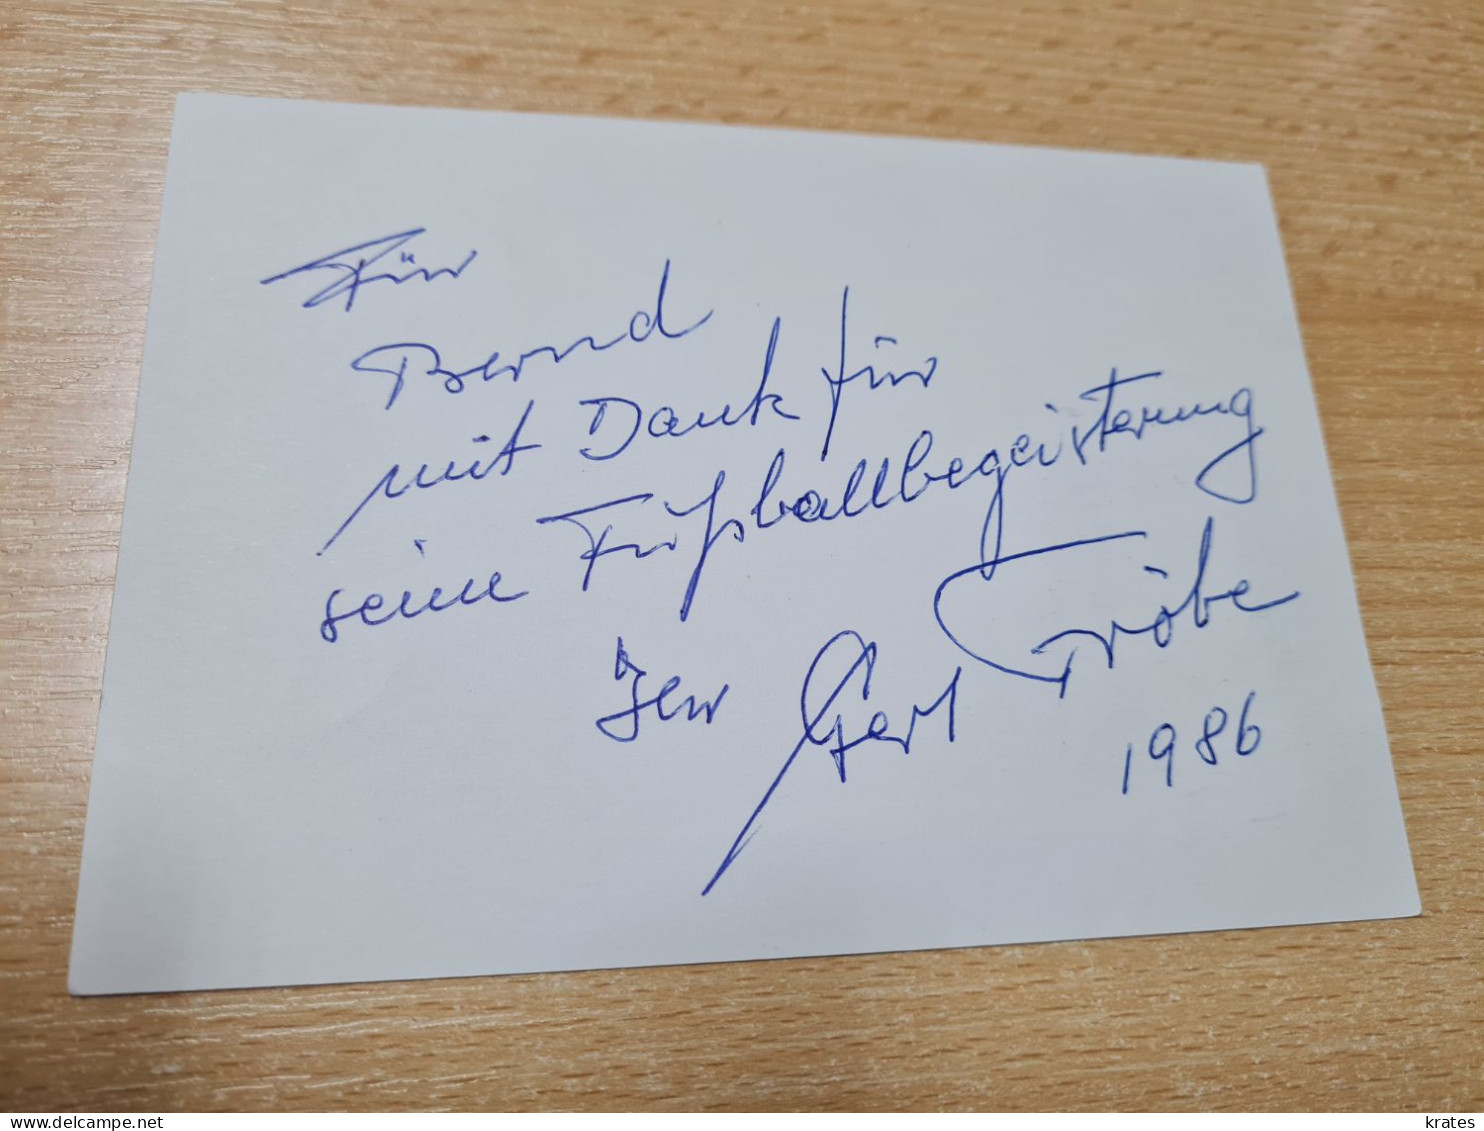 Für
Bernd
mit Dank für
seine Fußballbegeisterung
Ihr Gert Fröbe
1986
www.delcampe.net
krates